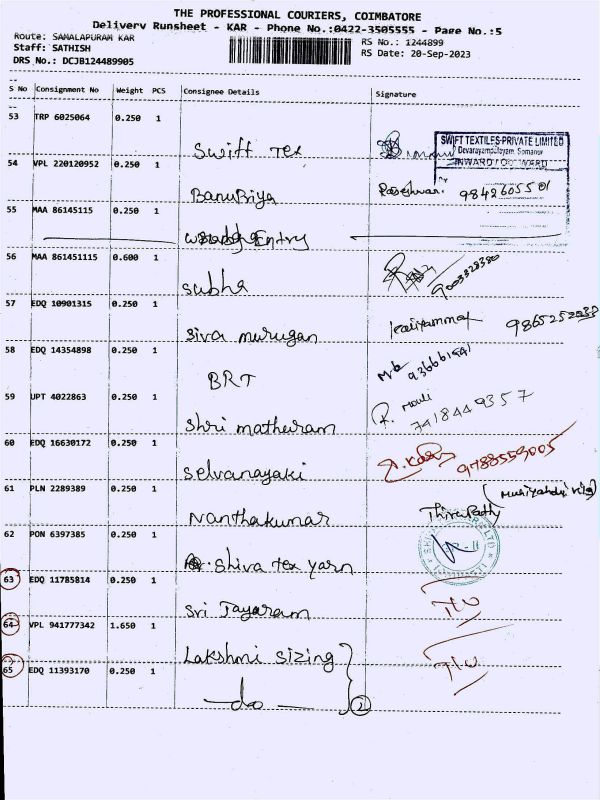 THE PROFESSIONAL COURIERS, COIMBATORE
Delivery Runsheet - KAR - Phone No.:0422-3505555 - Page No.:5
Route: SAMALAPURAM KAR
RS No.: 1244899
Staff: SATHISH
RS Date: 20-Sep-2023
DRS No.: DCJB124489905
S No Consignment No Weight PCS Consignee Details Signature
53 TRP 6025064 0.250 1
Swift Tex
SWIFT TEXTILES PRIVATE LIMITED
Devarayampalayam, Somanur
INWARD / OUTWARD
54 VPL 220120952 0.250 1
BanuPriya
9842605501
55 MAA 86145115 0.250 1
Entry
56 MAA 861451115 0.600 1
Subha
9003328380
57 EDQ 10901315 0.250 1
Siva murugan
58 EDQ 14354898 0.250 1
BRT
59 UPT 4022863 0.250 1
Shri matheram
R. Mouli
7418449357
60 EDQ 16630172 0.250 1
Selvanayaki
9788559005
61 PLN 2289389 0.250 1
Nanthakumar
Thirupathy
62 PON 6397385 0.250 1
Shiva tex yarn
63 EDQ 11785814 0.250 1
Sri Jayaram
64 VPL 941777342 1.650 1
Lakshmi Sizing
65 EDQ 11393170 0.250 1
-do-
2